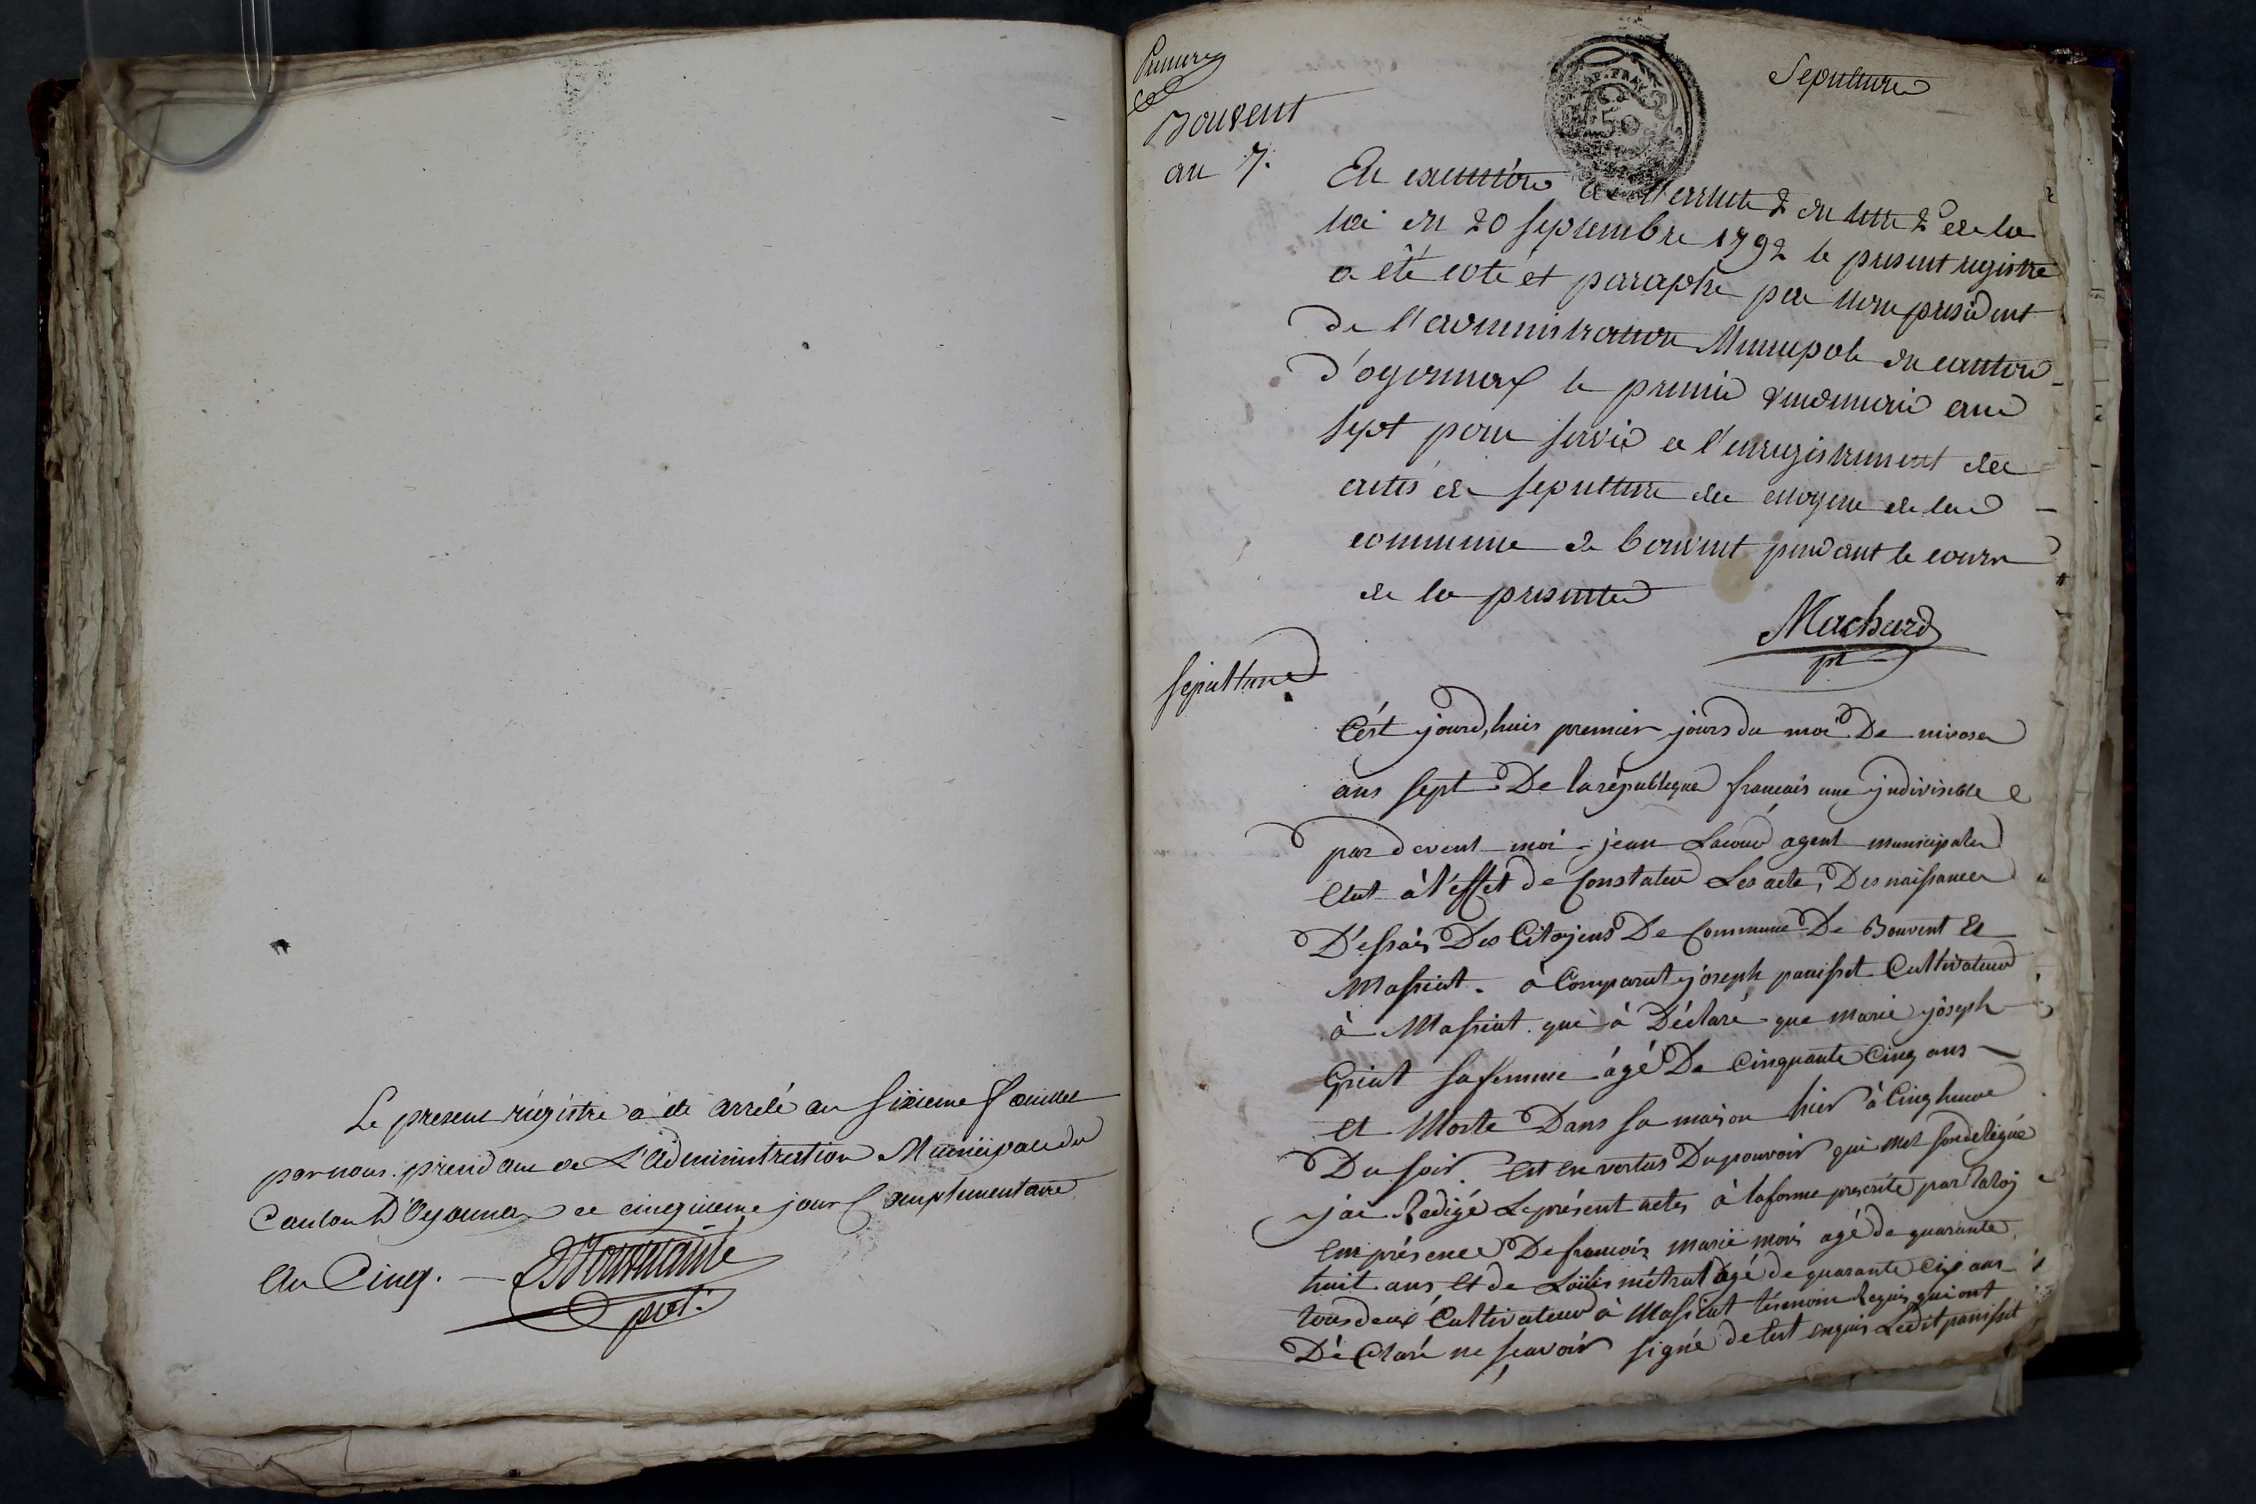 Le present régistre a été arrelé au sixieme feuillet
par nous président de L'administration Municipale du
Canton D'Oyonnax ce cinquieme jour Complementaire
An Cinq.
pdt.
Premier
Bouvent
an 7.
Sepulture
REP. FRA
50
En execution de l'article 2 du titre 2 de la
loi du 20 septembre 1792 le present registre
a été coté et paraphé par nous president
de l'administration Municipale du canton
d'oyonnax le premier vendemiaire an
sept pour servir a l'enregistrement des
actes de sepulture des citoyens de la
commune de bouvent pendant le cours
de la presente
Machard
pt
sepulture
Cést jourd,huis premier jours du moi De nivose
ans sept De la république francais une jndivisible
par devent moi jean Lacour agent municipale
Elut à l'effet de Constater Les acte, Des naissances
D'essais Des Citojens De Commune De Bouvent Et
Massiat. à Comparut joseph panisset Cultivateur
à Massiat. qui à Déclaré que marie joseph
Griat sa femme ágé De Cinquante Cinq ans
et Morte Dans sa maison hier à Cinq heure
Du soir. Et En vertus Du pouvoir qui met sondelégué
j'ai Redigé Le présent actes à la forme prescrite par la loy
Em présence De francois marie moris agé de quarante
huit ans, Et de Loüis métral agé de quarante Cix ans
tous deux Cultivateur à Massiat témoin Requis qui ont
Déclaré ne sçavoir signé de Cest enquis Ledit panisset